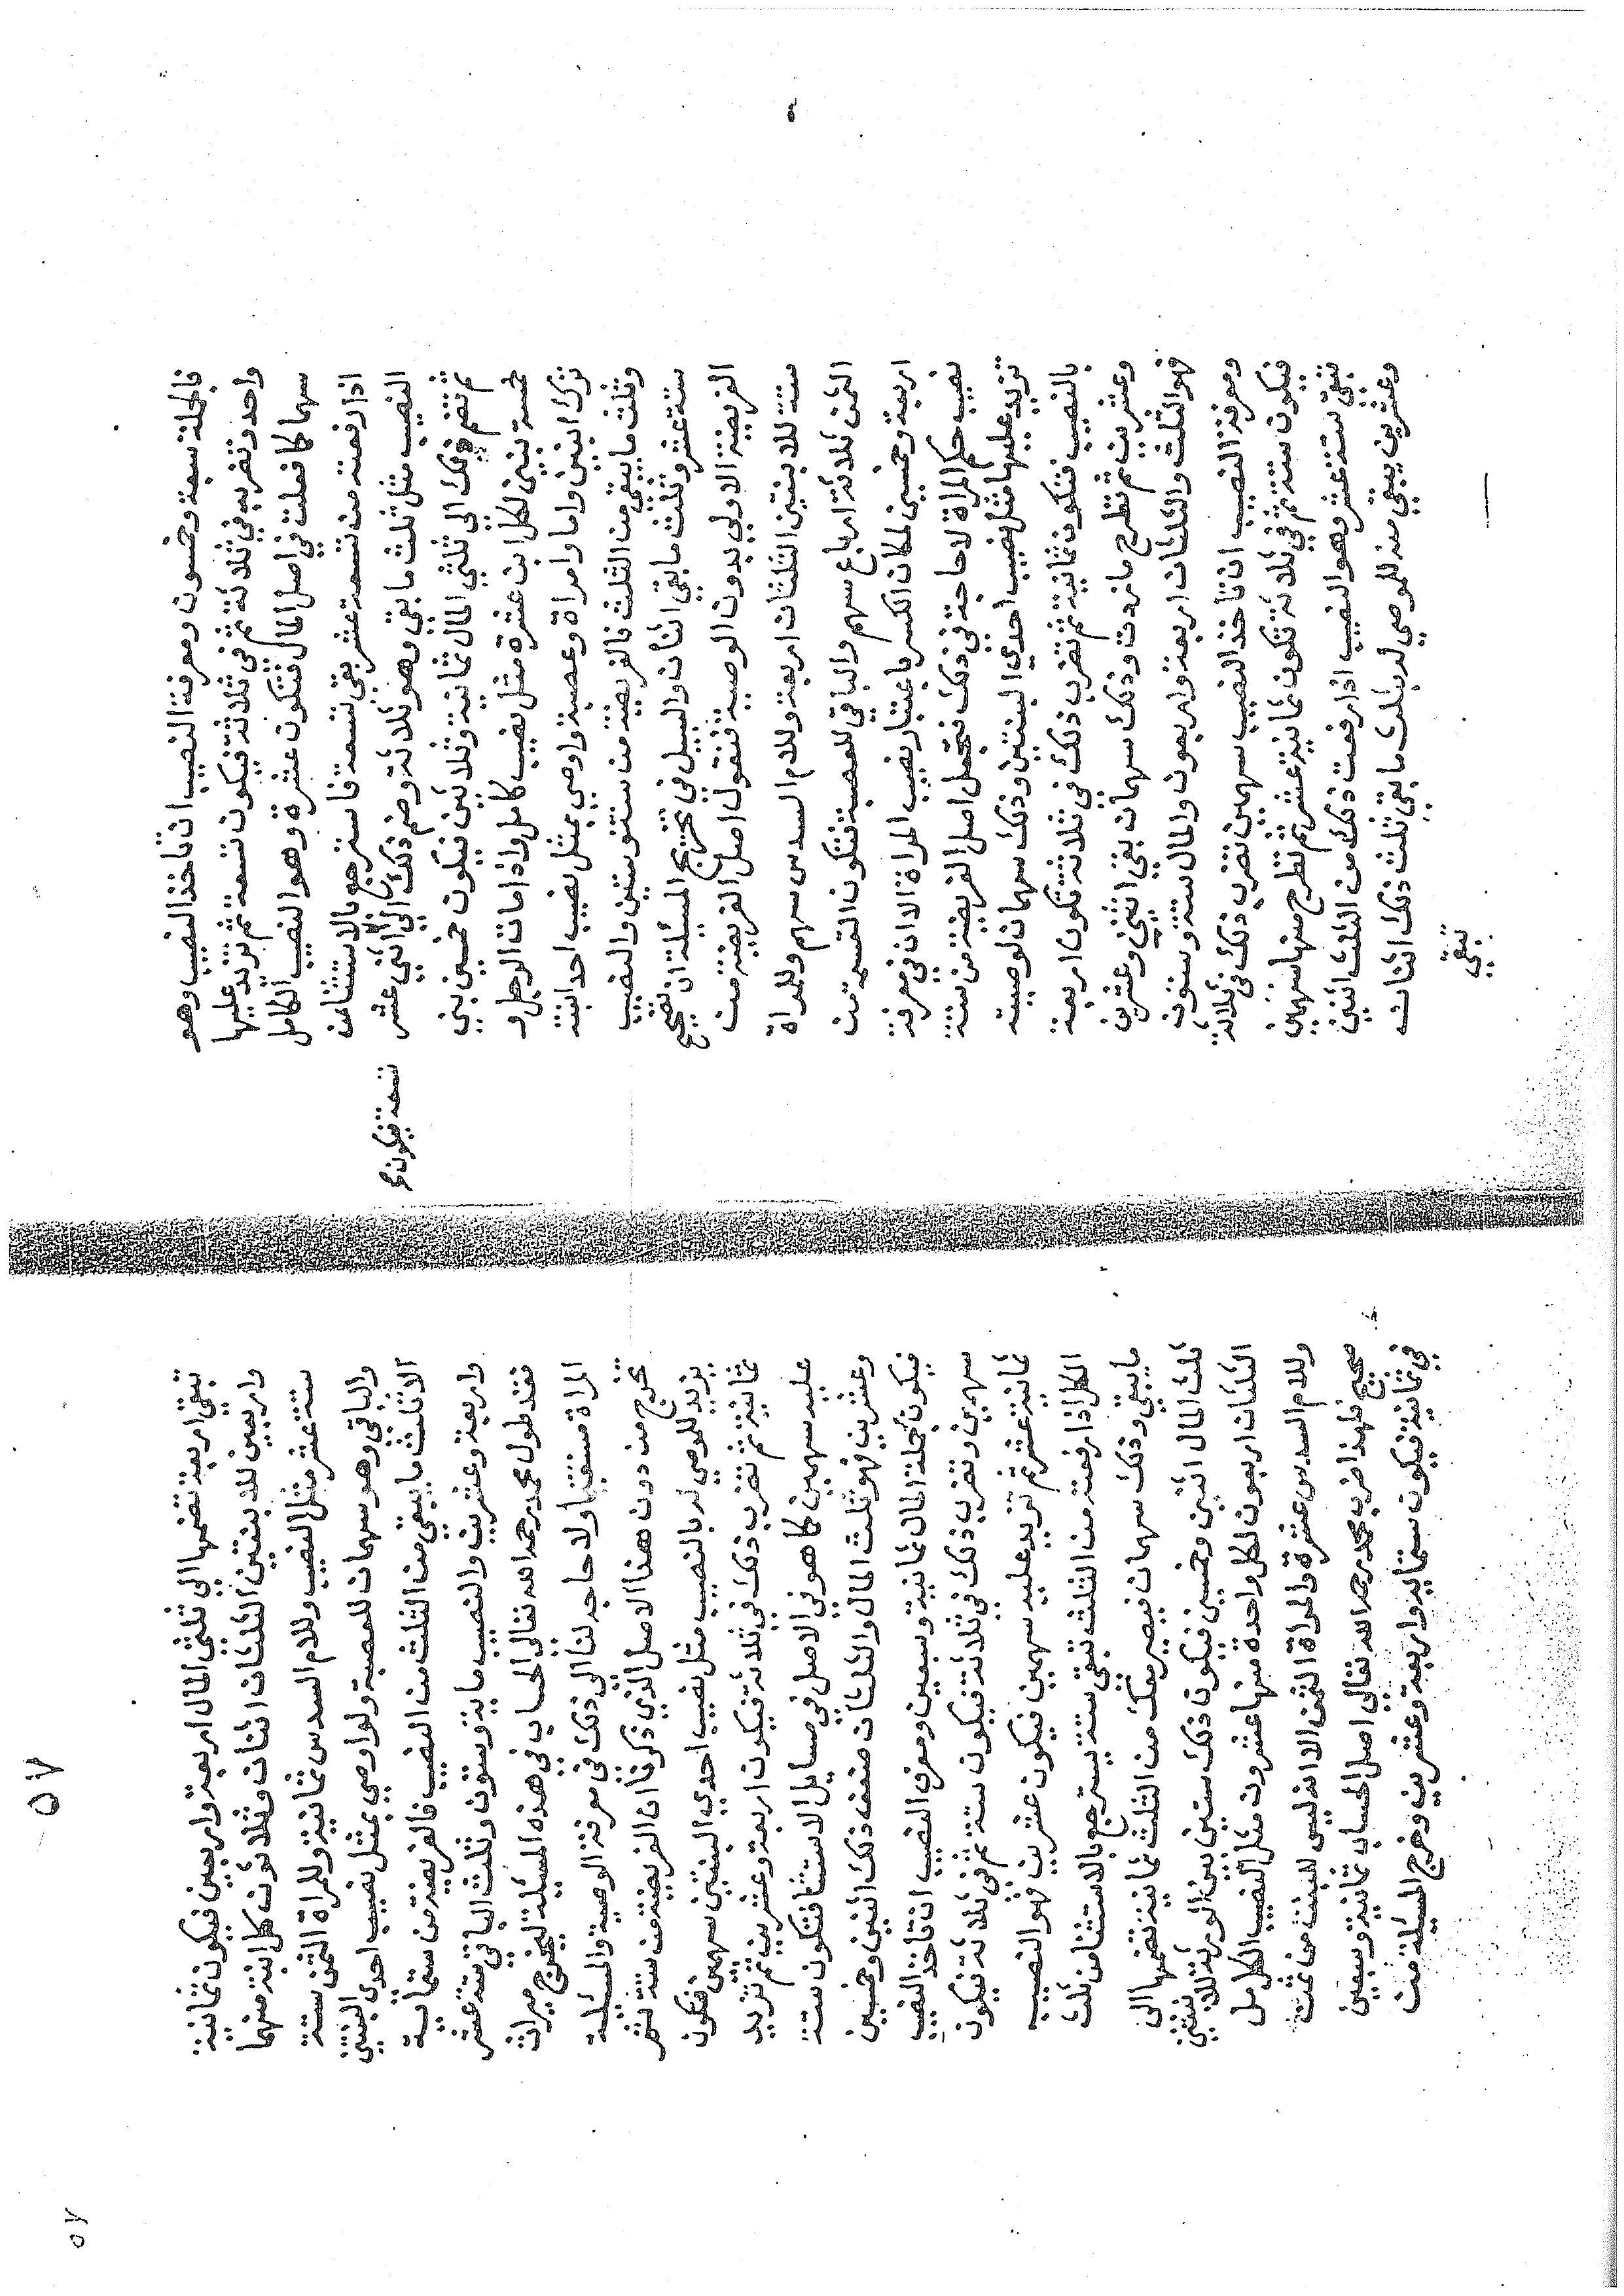 فالجملة سبعة وخمسون ومعرفة النصيب ان تاخذ النصيب وهو
واحد وتضربه في ثلاثة ثم في ثلاثة فيكون تسعة ثم تزيد عليها
سهما كما فعلت في اصل المال فتكون عشرة وهو النصيب الكامل
اذا رفعته من تسعة عشر بقي تسعة فاسترجع بالاستثناء من
النصيب مثل ثلث ما بقي وهو ثلاثة وضم ذلك الي تسعة فيكون اثني عشر
ثم تضم ذلك الى ثلثي المال ثمانية وثلاثين فيكون خمسين بين
خمسة بنين لكل ابن عشرة مثل نصيب كامل واذا مات الرجل و
ترك ابنتين واما وامراة وعصبة واوصى بمثل نصيب احد ابنتيه
وثلث ما يبقي من الثلث فالفريضة من ستة وستين والنصيب
ستة عشر وثلث ما بقي اثنان والسبيل في تخريج المسئلة ان تصحح
الفريضة الاولى بدون الوصية فنقول اصل الفريضة من
ستة للابنتين الثلثان اربعة وللام السدس سهم وللمراة
الثمن ثلاثة ارباع سهم والباقي للعصبة فتكون القسمة من
اربعة وخمسين لمكان الكسر باعتبار نصيب المراة الا ان في معرفة
نصيب حكم المراة لا حاجة في ذلك فتجعل اصل الفريضة من ستة
تزيد عليها مثل نصيب احدى البنتين وذلك سهمان لوصيته
بالنصيب فتكون ثمانية ثم تضرب ذلك في ثلاثة تكون اربعة
وعشرين ثم تطرح ما زدت وذلك سهمان بقي اثنين وعشرين
فهو الثلث والثلثان اربعة واربعون والمال ستة وستون
ومعرفة النصيب ان تاخذ النصيب سهمين تضرب ذلك في ثلاثة
فيكون ستة ثم في ثلاثة تكون ثمانية عشر ثم تطرح منها سهمين
تبقى ستة عشر وهو النصيب اذا رفعت ذلك من الثلث اثنين
وعشرين يبقي منه للموصي له بثلث ما بقي ثلث ذلك اثنان
تبقي
٥٧
تبقى اربعة تضمها الي ثلثي المال اربعة واربعين فيكون ثمانية
واربعين للابنتين الثلثان اثنان وثلاثون كل ابنة منهما
ستة عشر مثل النصيب وللام السدس ثمانية وللمراة الثمن ستة
والباقي وهو سهمان للعصبة ولو اوصي بمثل نصيب احدى البنتين
الا ثلث ما يبقي من الثلث من النصيب فالفريضة من ستماية
واربعة وعشرين والنصيب ماية وستون وثلث الباقي ستة عشر
فقد طول محمد رحمه الله تعالى الحساب في هذه المسئلة ليخرج ميراث
المراة مستقيما ولا حاجة لنا الى ذلك في معرفة الوصية والمسئلة
تخرج من دون هذا الاصل الذي ذكرنا ان الفريضة من ستة ثم
يزيد للموصي له بالنصيب مثل نصيب احدي البنتين سهمين فتكون
ثمانية ثم تضرب ذلك في ثلاثة فيكون اربعة وعشرين ثم تزيد
عليه سهمين كما هو في الاصل في مسايل الاستثنا فتكون ستة
وعشرين فهو ثلث المال والثلثان ضعف ذلك اثنين وخمسين
فيكون جملة المال ثمانية وسبعين ومعرفة النصيب ان تاخذ النصيب
سهمين وتضرب ذلك في ثلاثة فيكون ستة ثم في ثلاثة فيكون
ثمانية عشر ثم تزيد عليه سهمين فيكون عشرين فهو النصيب
الكل اذا رفعته من الثلث تبقي ستة يسترجع بالاستثنا من ثلث
ما يبقي وذلك سهمان فيصير معك من الثلث ثمانية تضمها الى
ثلث المال اثنين وخمسين فيكون ذلك ستين بين الورثة للابنتين
الثلثان اربعون لكل واحدة منها عشرون مثل النصيب الكامل
وللام السدس عشرة وللمراة الثمن الا انه ليس للستين ثمن
صحيح فلهذا ضرب محمد رحمه الله تعالي اصل الحساب ثمانية وسبعين
في ثمانية فيكون ستماية واربعة وعشرين وخرج المسئلة من
٥٧